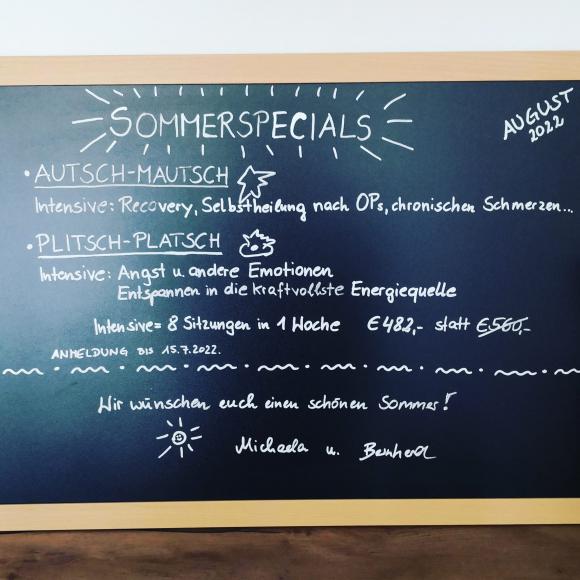 SOMMERSPECIALS
AUGUST
2022
• AUTSCH-MAUTSCH
Intensive: Recovery, Selbstheilung nach OPs, chronischen Schmerzen...
• PLITSCH-PLATSCH
Intensive: Angst u. andere Emotionen
Entspannen in die kraftvollste Energiequelle
Intensive = 8 Sitzungen in 1 Woche € 482,- statt €560,-
ANMELDUNG BIS 15.7.2022.
Wir wünschen euch einen schönen Sommer!
Michaela u. Bernhard